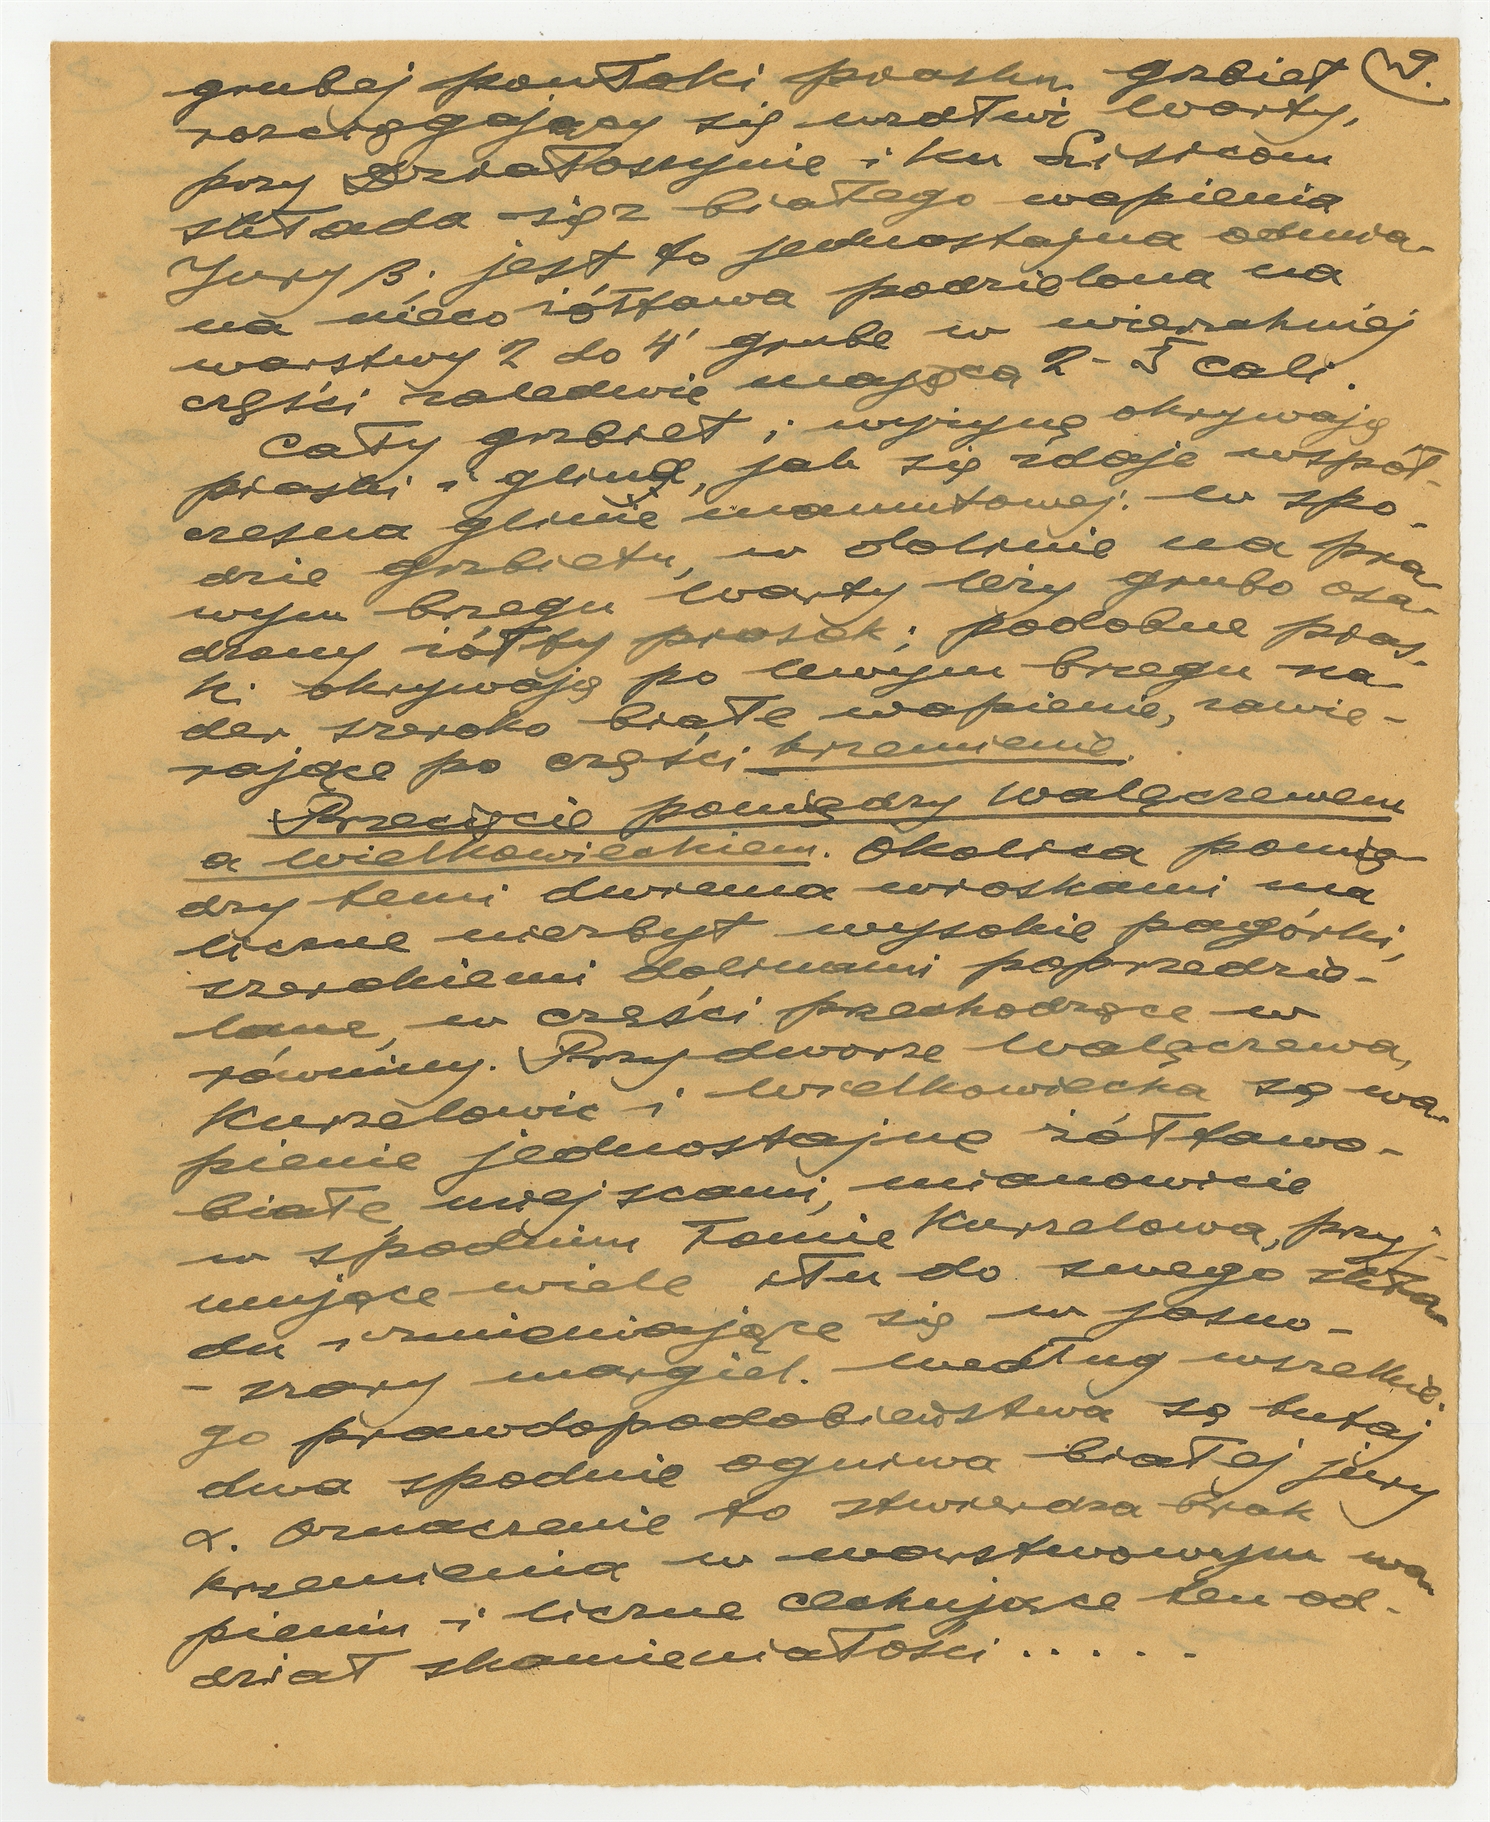 grubej powłoki piasku. grzbiet
rozciągający się wzdłuż Warty,
przy Działoszynie i ku Lisicom
składa się z białego wapienia
Jury β; jest to jednostajna odmia-
na nieco żółtawa podzielona na
warstwy 2 do 4' grube w wierzchniej
części zaledwie mająca 2-5 cali.
Cały grzbiet i wyżynę okrywają
piaski i glina, jak się zdaje współ-
czesna glinie mamutowej. w spo-
dzie grzbietu, w dolinie na pra-
wym brzegu Warty leży grubo osa-
dzony żółty piasek; podobne pias-
ki okrywają po lewym brzegu na-
der szeroko białe wapienie, zawie-
rające po części krzemienie.
Przecięcie pomiędzy Walęczewem
a Wielkowieckiem. Okolica pomię-
dzy temi dwiema wioskami ma
liczne niezbyt wysokie pagórki,
szerokiemi dolinami poprzedzie-
lane, w części przechodzące w
równiny. Przy dworze Walęczewa,
Kurzelowic i Wielkowiecka są wa-
pienie jednostajne żółtawo-
białe miejscami, mianowicie
w spodnim łomie Kurzelowa, przyj-
mujące wiele iłu do swego skła-
du i zmieniające się w jasno-
- szary margiel. Według wszelkie-
go prawdopodobieństwa są tutaj
dwa spodnie ogniwa białej jury
α. Oznaczenie to stwierdza brak
krzemienia w warstwowym wa-
pieniu i liczne cechujące ten od-
dział skamieniałości . . . . .